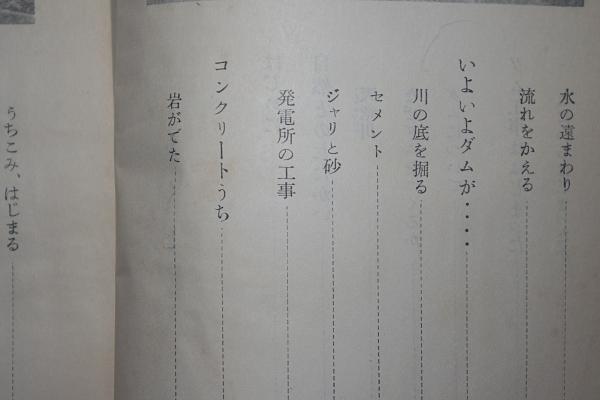 水の遠まわり
流れをかえる
いよいよダムが・・・・
川の底を掘る
セメント
ジャリと砂
発電所の工事
コンクリートうち
岩がでた
うちこみ、はじまる